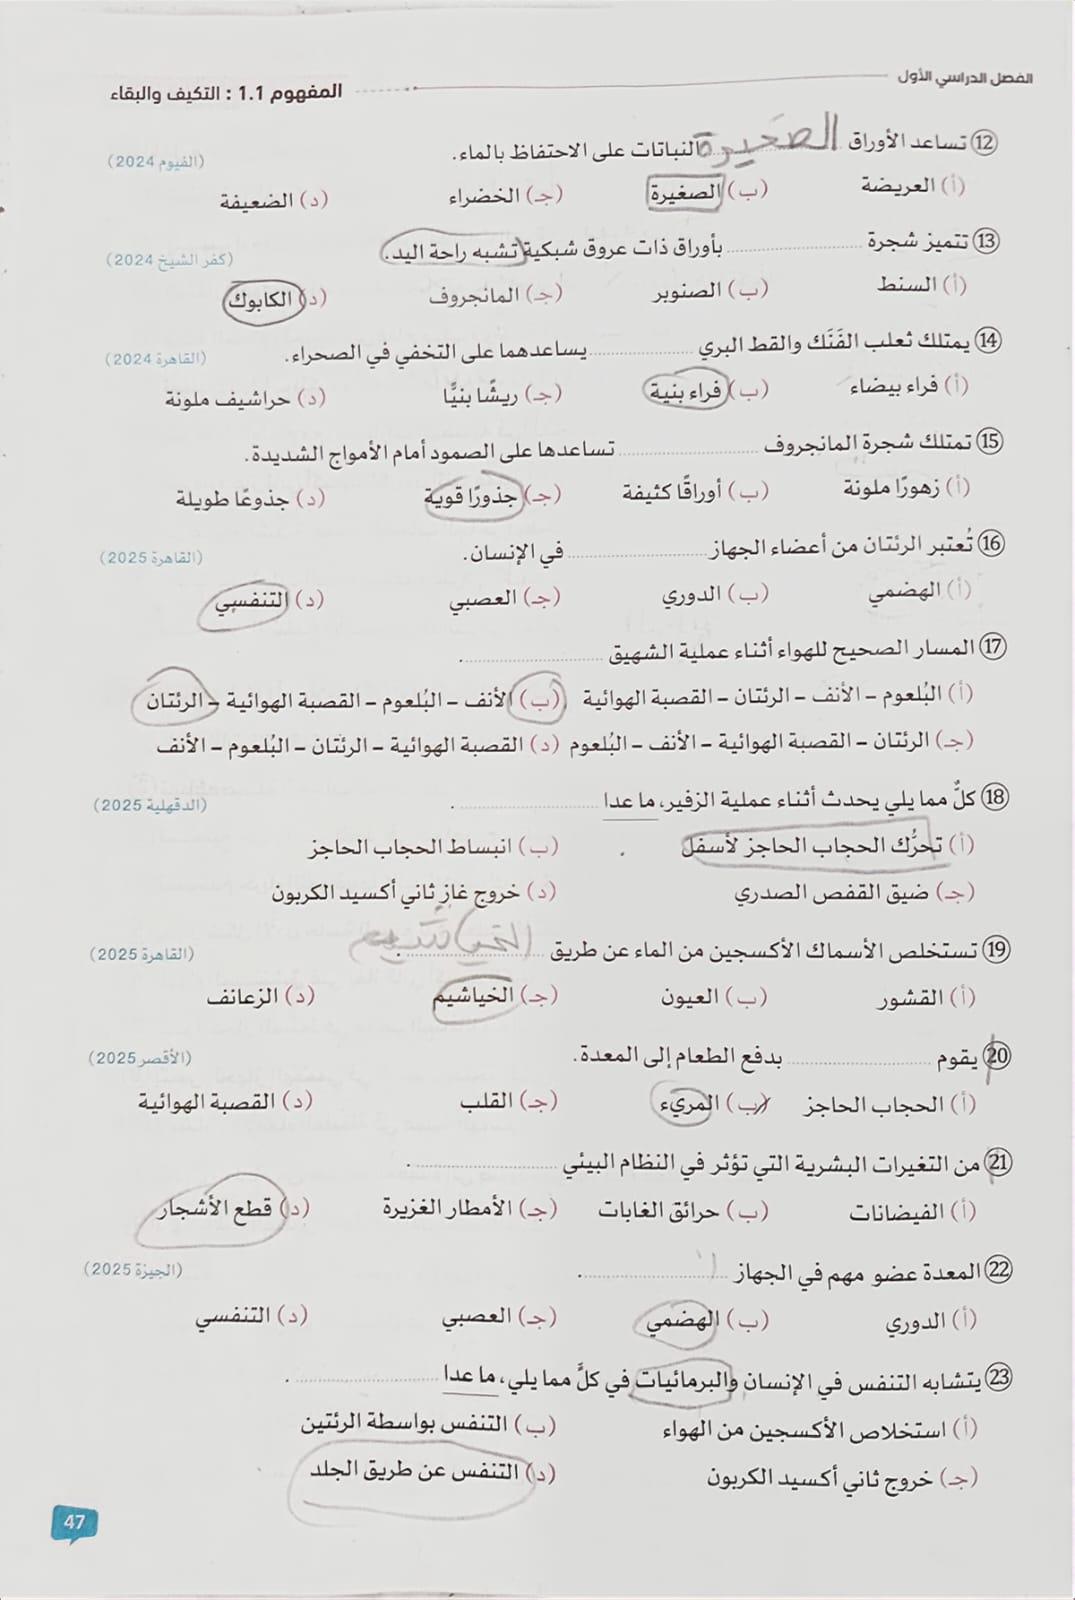 الفصل الدراسي الأول
المفهوم 1.1 : التكيف والبقاء
12 تساعد الأوراق الصغيرة النباتات على الاحتفاظ بالماء. (الفيوم 2024)
(أ) العريضة (ب) الصغيرة (جـ) الخضراء (د) الضعيفة
13 تتميز شجرة .......... بأوراق ذات عروق شبكية تشبه راحة اليد. (كفر الشيخ 2024)
(أ) السنط (ب) الصنوبر (جـ) المانجروف (د) الكابوك
14 يمتلك ثعلب الفَنَك والقط البري .......... يساعدهما على التخفي في الصحراء. (القاهرة 2024)
(أ) فراء بيضاء (ب) فراء بنية (جـ) ريشًا بنيًّا (د) حراشيف ملونة
15 تمتلك شجرة المانجروف .......... تساعدها على الصمود أمام الأمواج الشديدة.
(أ) زهورًا ملونة (ب) أوراقًا كثيفة (جـ) جذورًا قوية (د) جذوعًا طويلة
16 تُعتبر الرئتان من أعضاء الجهاز .......... في الإنسان. (القاهرة 2025)
(أ) الهضمي (ب) الدوري (جـ) العصبي (د) التنفسي
17 المسار الصحيح للهواء أثناء عملية الشهيق ...........
(أ) البُلعوم – الأنف – الرئتان – القصبة الهوائية (ب) الأنف – البُلعوم – القصبة الهوائية – الرئتان
(جـ) الرئتان – القصبة الهوائية – الأنف – البُلعوم (د) القصبة الهوائية – الرئتان – البُلعوم – الأنف
18 كلٌّ مما يلي يحدث أثناء عملية الزفير، ما عدا ........... (الدقهلية 2025)
(أ) تحرُّك الحجاب الحاجز لأسفل (ب) انبساط الحجاب الحاجز
(جـ) ضيق القفص الصدري (د) خروج غاز ثاني أكسيد الكربون
19 تستخلص الأسماك الأكسجين من الماء عن طريق الخياشيم. (القاهرة 2025)
(أ) القشور (ب) العيون (جـ) الخياشيم (د) الزعانف
20 يقوم .......... بدفع الطعام إلى المعدة. (الأقصر 2025)
(أ) الحجاب الحاجز (ب) المريء (جـ) القلب (د) القصبة الهوائية
21 من التغيرات البشرية التي تؤثر في النظام البيئي ...........
(أ) الفيضانات (ب) حرائق الغابات (جـ) الأمطار الغزيرة (د) قطع الأشجار
22 المعدة عضو مهم في الجهاز ........... (الجيزة 2025)
(أ) الدوري (ب) الهضمي (جـ) العصبي (د) التنفسي
23 يتشابه التنفس في الإنسان والبرمائيات في كلَّ مما يلي، ما عدا ...........
(أ) استخلاص الأكسجين من الهواء (ب) التنفس بواسطة الرئتين
(جـ) خروج ثاني أكسيد الكربون (د) التنفس عن طريق الجلد
47